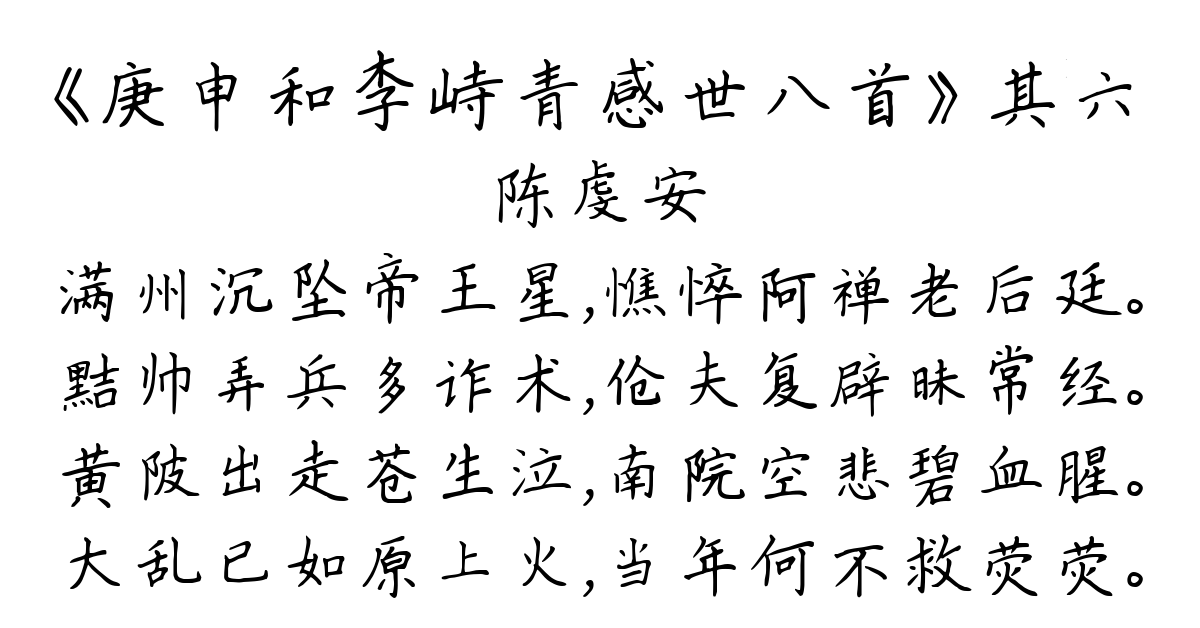 《庚申和李峙青感世八首》其六
陈虔安
满州沉坠帝王星,憔悴阿禅老后廷。
黠帅弄兵多诈术,伧夫复辟昧常经。
黄陂出走苍生泣,南院空悲碧血腥。
大乱已如原上火,当年何不救荧荧。